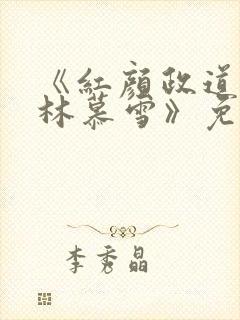 《紅顏政道
林慕雪》免
李秀晶